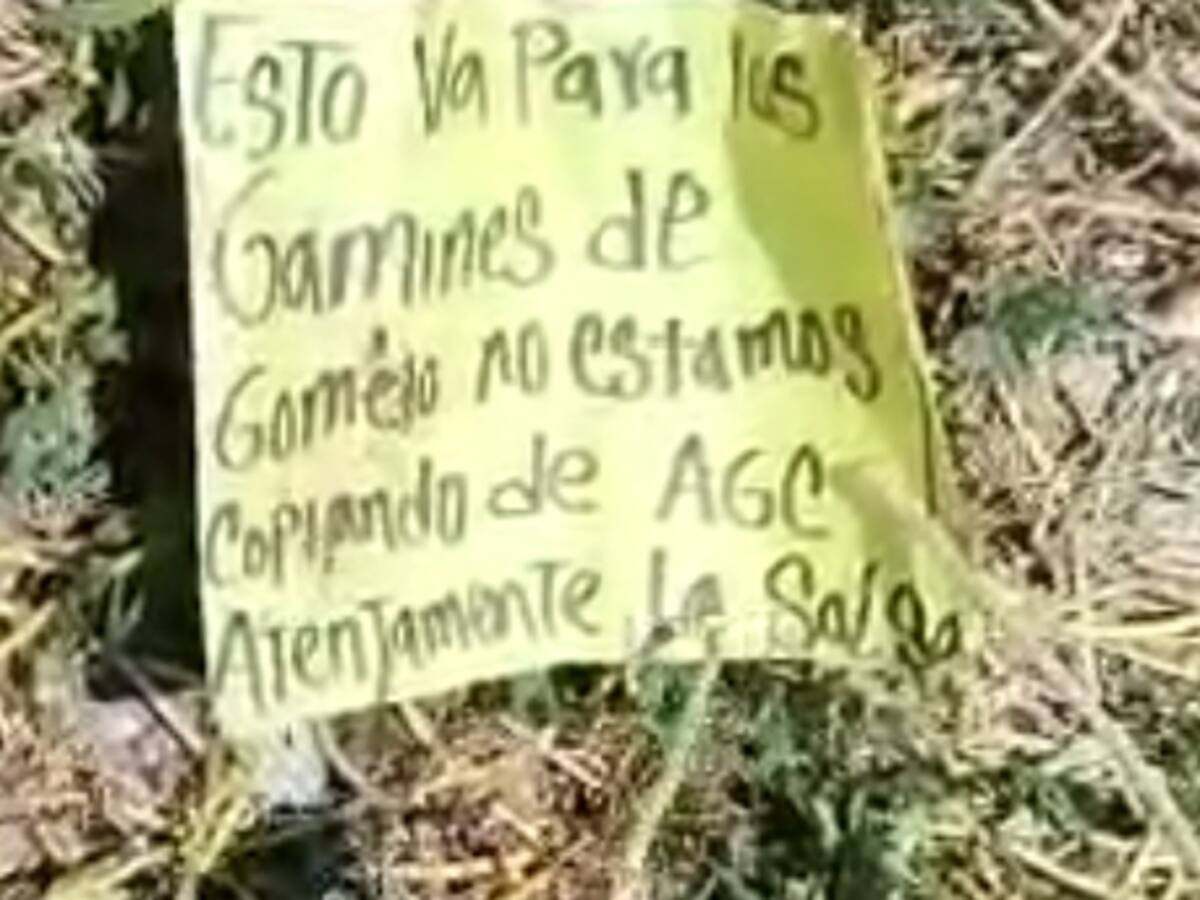 Esto Va Para los
Gamines de
Gomélo no estamos
Copiando de AGC
Atentamente La Salsa